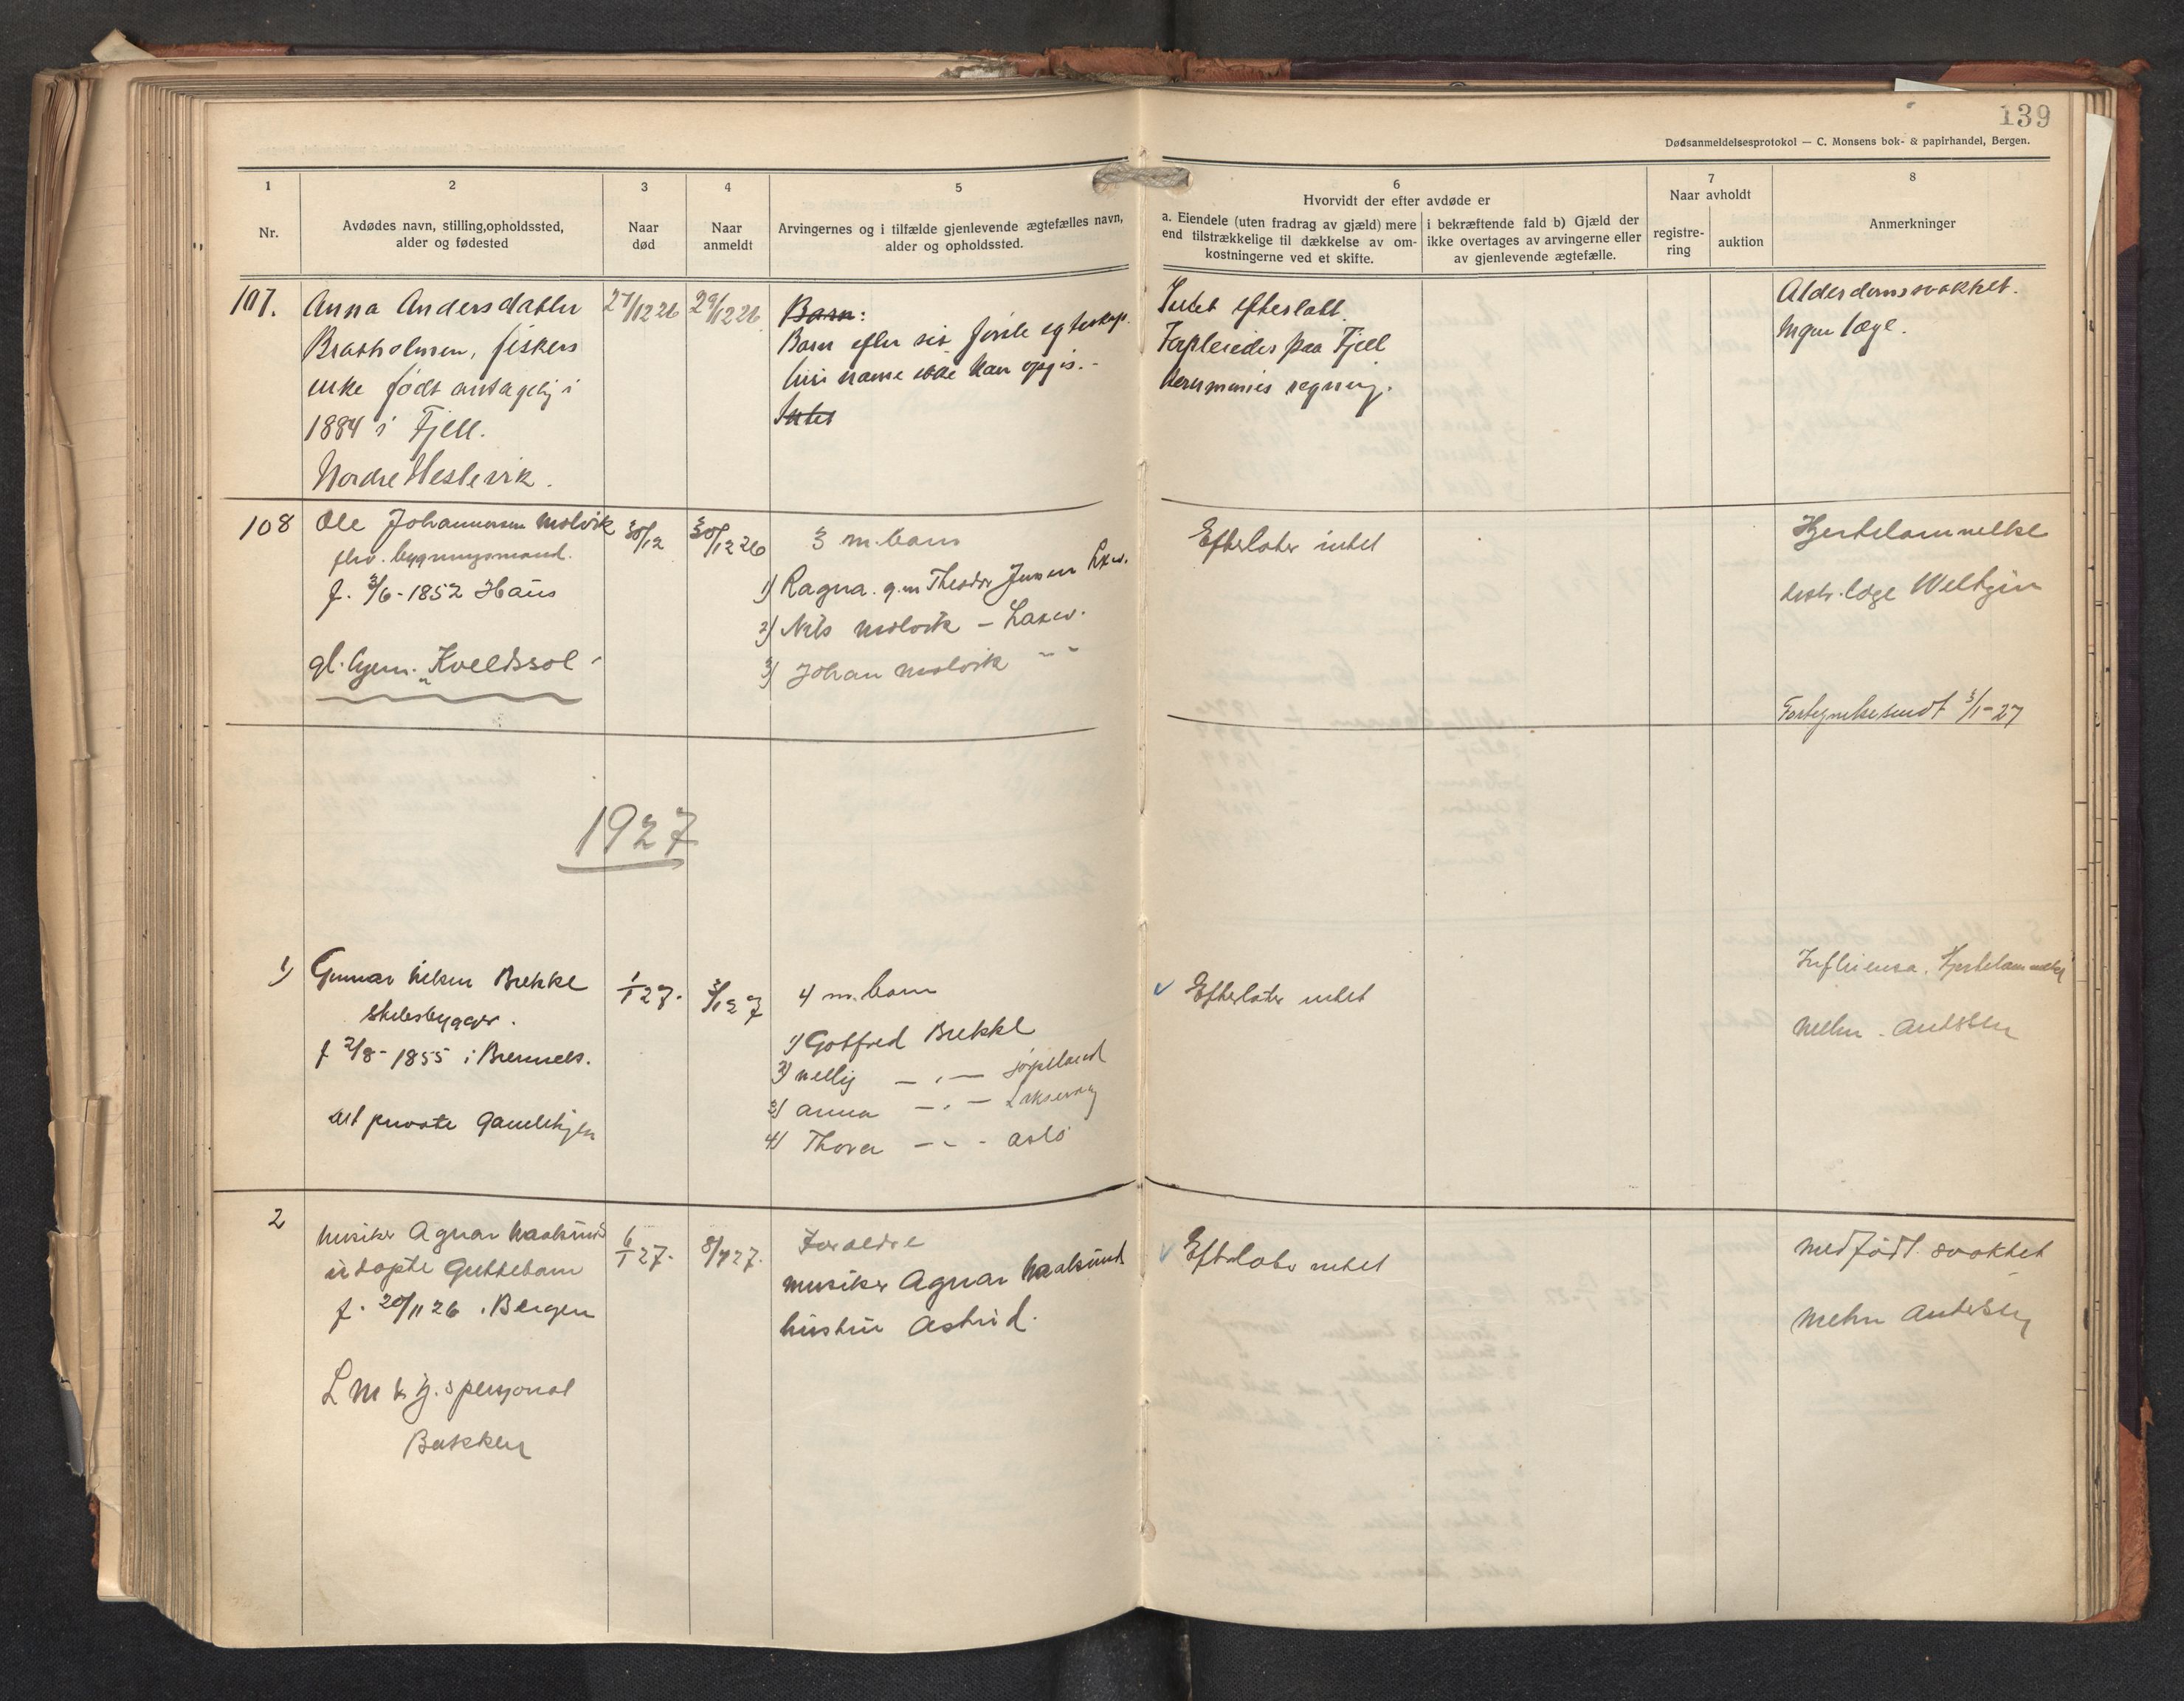 139
Dødsanmeldelsesprotokol — C. Monsens bok- & papirhandel, Bergen.
1
Nr.
2
Avdødes navn, stilling, opholdssted,
alder og fødested
3
Naar
død
4
Naar
anmeldt
5
Arvingernes og i tilfælde gjenlevende ægtefælles navn,
alder og opholdssted.
6
Hvorvidt der efter avdøde er
a. Eiendele (uten fradrag av gjæld) mere
end tilstrækkelige til dækkelse av om-
kostningerne ved et skifte.
i bekræftende fald b) Gjæld der
ikke overtages av arvingerne eller
av gjenlevende ægtefælle.
7
Naar avholdt
registre-
ring
auktion
8
Anmerkninger
107.
Anna Andersdatter
Bratholmen, fiskers
enke født antagelig i
1884 i Fjell.
Nordre
27/12 26
29/12 26
Barn:
Barn efter sit første egteskap.
navne ikke kan opgis. -
Intet
Intet efterlatt.
Forpleiedes paa Fjell
kommunes regning.
Alderdomssvakhet.
Ingen læge.
108
Ole Johannesen Molvik
fhv. bygningsmand.
f. 3/6 - 1852 Haus
gl. hjem. "Kveldssol"
30/12
30/12 26
3 m. barn
1) Ragna. g.m Theodor Jensen Laxv.
2) Nils Molvik - Laxev.
3) Johan Molvik - -
Efterlater intet
Hjertelammelse
distr. læge
3/1 - 27
1927
1)
Gunnar Nilsen Brekke
skibsbygger.
f 2/8 - 1855 i Bremnes.
det private Gamlehjem
1/1 27.
3/1 27
4 m. barn
1) Gotfred Brekke
2) Nelly - " -
3) Anna - " - Laksevaag
4) Thora - " - Oslo
Efterlater intet
Influensa. Hjertelammelse
Mehn-Andersen
2
Musiker Agnar
udøpte Guttebarn
f. 20/11 26 i Bergen
personal
Bakken
6/1 27.
8/1 27.
Foreldre
musiker Agnar
hustru Astrid.
Efterlater intet
Medfødt svakhet
Mehn Andersen